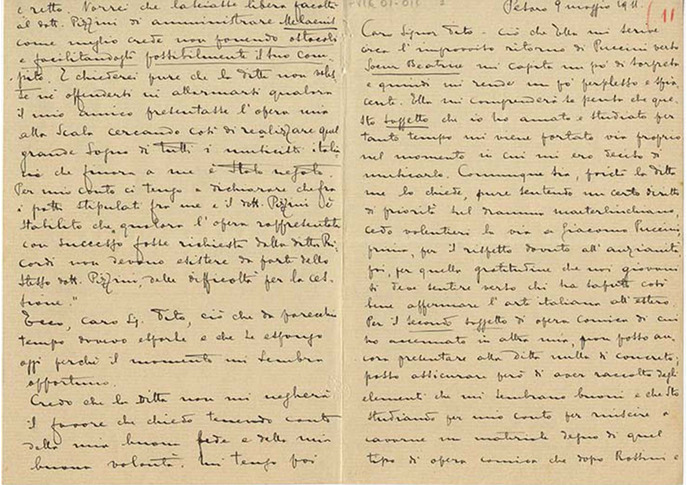 e retto. Vorrei che lasciaste libera facoltà
al dott. Pizzini di amministrare Melaenis
come meglio crede non ponendo ostacoli
e facilitandogli possibilmente il suo com-
pito. E chiederei pure che la ditta non voles-
se nè offendersi nè allarmarsi qualora
il mio amico presentasse l'opera mia
alla Scala cercando così di realizzare quel
grande sogno di tutti i musicisti italia
ni che finora a me è stato negato.
Per mio conto ci tengo a dichiarare che fra
i patti stipulati fra me e il dott. Pizzini è
stabilito che, qualora l'opera rappresentata
con successo fosse richiesta dalla ditta Ri-
cordi non devono esistere da parte dello
stesso dott. Pizzini, delle difficoltà per la ces-
sione."
Ecco, caro Sig. Tito, ciò che da parecchio
tempo dovevo esporle e che le espongo
oggi perchè il momento mi sembra
opportuno.
Credo che la Ditta non mi negherà
il favore che chiedo tenendo conto
della mia buona fede e della mia
buona volontà. Mi tengo poi
Pesaro 9 maggio 1911.
11
Caro Signor Tito - Ciò che Ella mi scrive
circa l'improvviso ritorno di Puccini verso
Soeur Beatrice mi capita un po' di sorpresa
e quindi mi rende un po' perplesso e spia-
cente. Ella mi comprenderà se pensa che que-
sto soggetto che io ho amato e studiato per
tanto tempo mi viene portato via proprio
nel momento in cui mi ero deciso di
musicarlo. Comunque sia, poichè la ditta
me lo chiede, pure sentendo un certo diritto
di priorità sul dramma maeterlinckiano,
cedo volentieri la via a Giacomo Puccini
prima, per il rispetto dovuto all'anzianità
poi, per quella gratitudine che noi giovani
si deve sentire verso chi ha saputo così
bene affermare l'arte italiana all'estero.
Per il secondo soggetto di opera comica di cui
ho accennato in altra mia, non posso an-
cora presentare alla Ditta nulla di concreto;
posso assicurare però di aver raccolto degli
elementi che mi sembrano buoni e che sto
studiando per mio conto per riuscire a
cavarne un materiale degno di quel
tipo di opera comica che dopo Rossini e